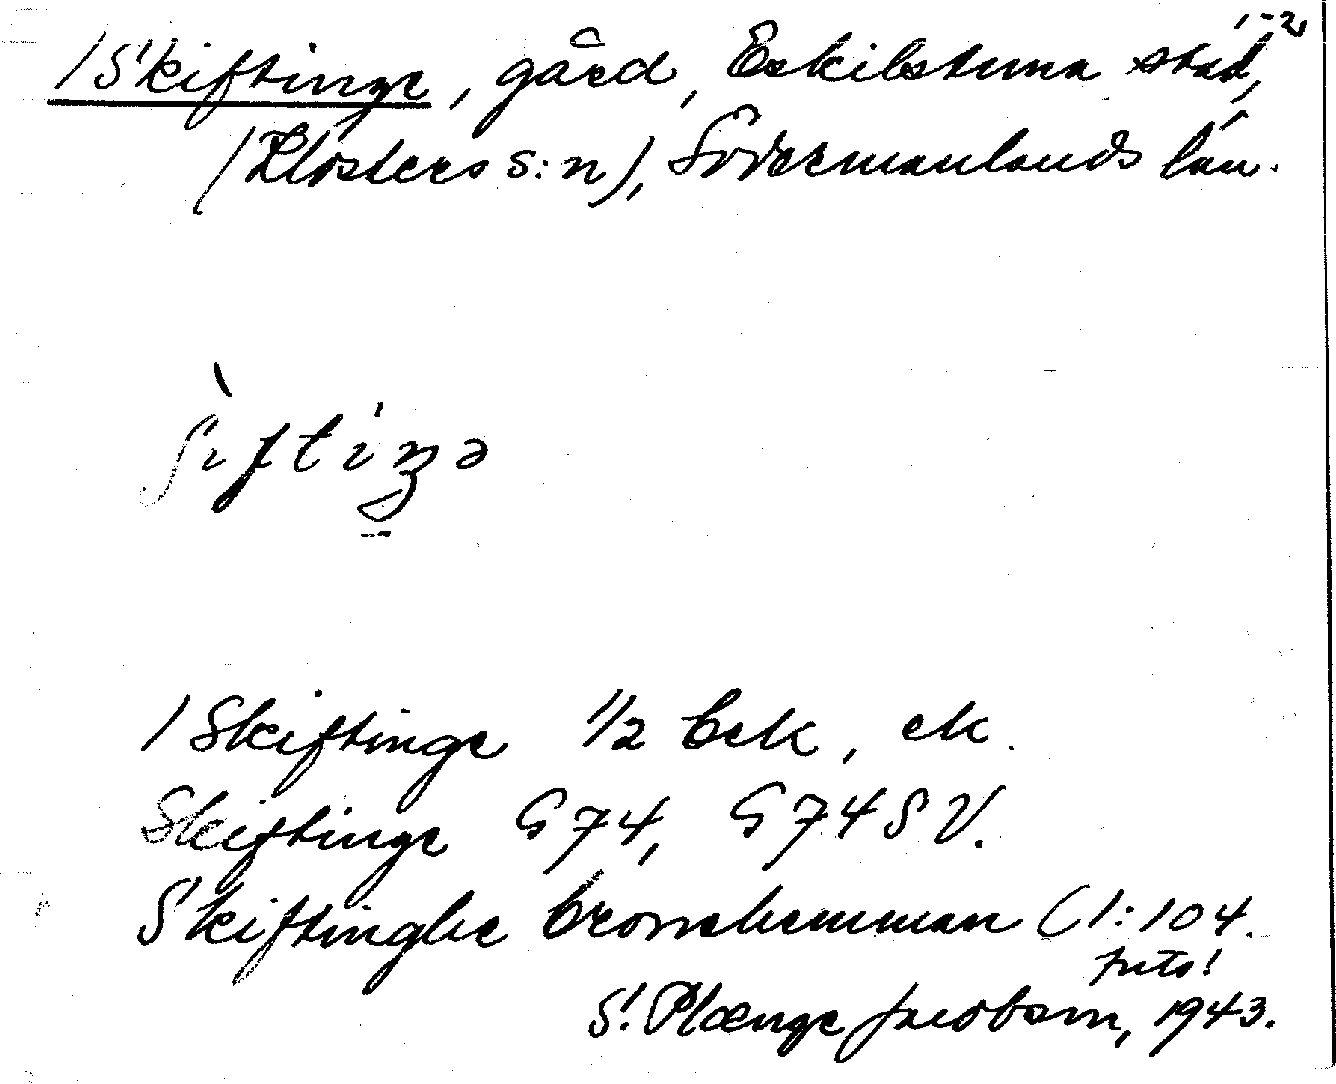 1-2
/Skiftinge, gård, Eskilstuna stad,
(Klosters s:n), Södermanlands län.
ʃìftiŋə
/Skiftinge 1/2 bek, ek.
Skiftinge G 74, G 74 SV.
Skiftinghe cronehemman C 1:104.
puts!
S. Plænge Jacobson, 1943.